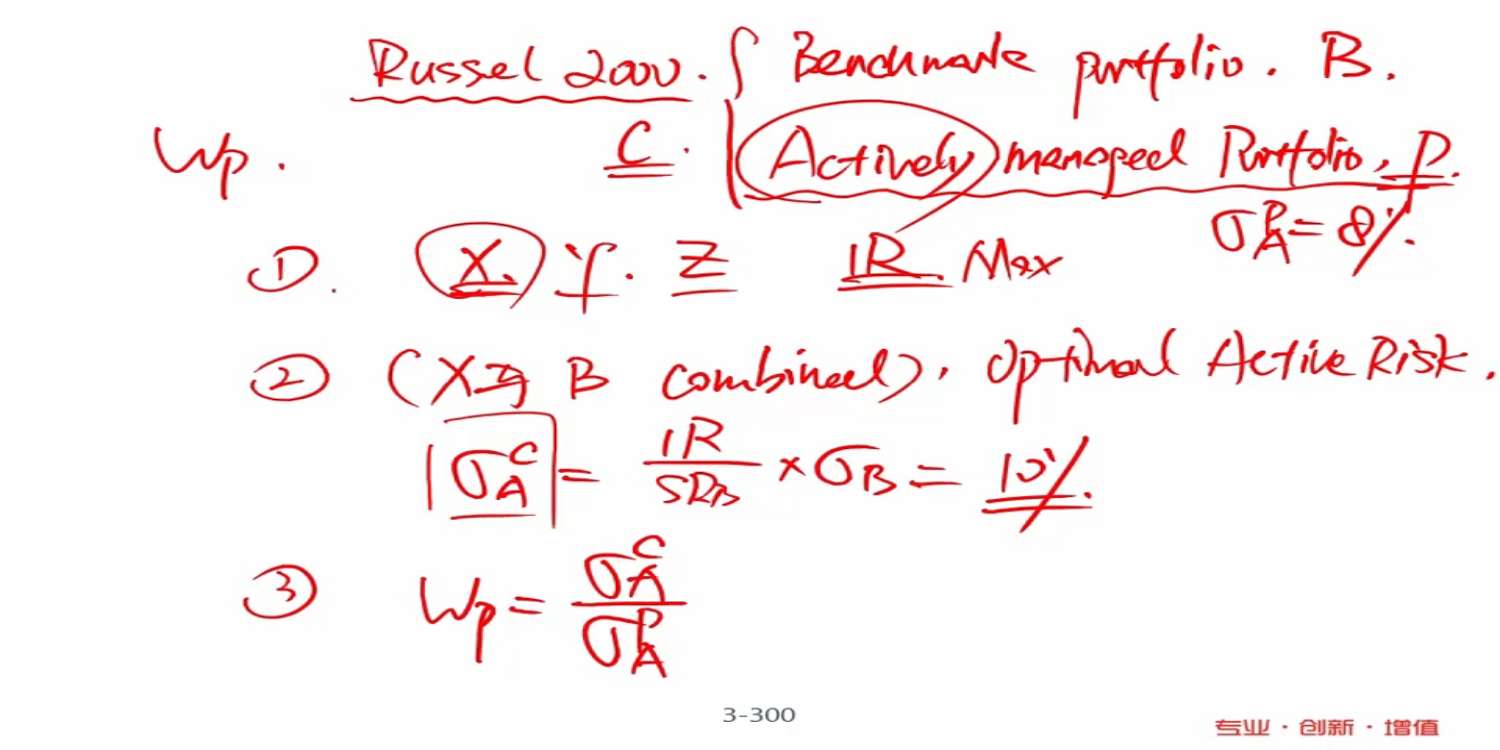 Russel 2000. { Benchmark portfolio. B.
Wp. C. Actively managed Portfolio, P.
σ_A^P = 8%.
① X. Y. Z IR. Max
② (X与 B combined), optimal Active Risk.
σ_A^C = IR/SR_B × σ_B = 10%.
③ Wp = σ_A^C/σ_A^P
3-300
专业·创新·增值